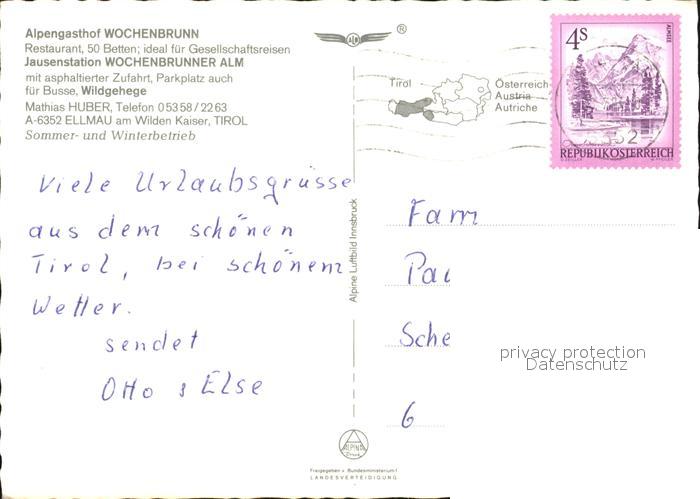 Alpengasthof WOCHENBRUNN
Restaurant, 50 Betten; ideal für Gesellschaftsreisen
Jausenstation WOCHENBRUNNER ALM
mit asphaltierter Zufahrt, Parkplatz auch
für Busse, Wildgehege
Mathias HUBER, Telefon 05358/2263
A-6352 ELLMAU am Wilden Kaiser, TIROL
Sommer- und Winterbetrieb
Viele Urlaubsgrüsse
aus dem schönen
Tirol, bei schönem
Wetter.
sendet
Otto & Else
Alpine Luftbild Innsbruck
ALM
®
Tirol
Österreich
Austria
Autriche
4S
ALMSEE
REPUBLIK ÖSTERREICH
Fam
Pau
Sche
6
privacy protection
Datenschutz
ALPINA
Freigegeben v. Bundesministerium f.
LANDESVERTEIDIGUNG